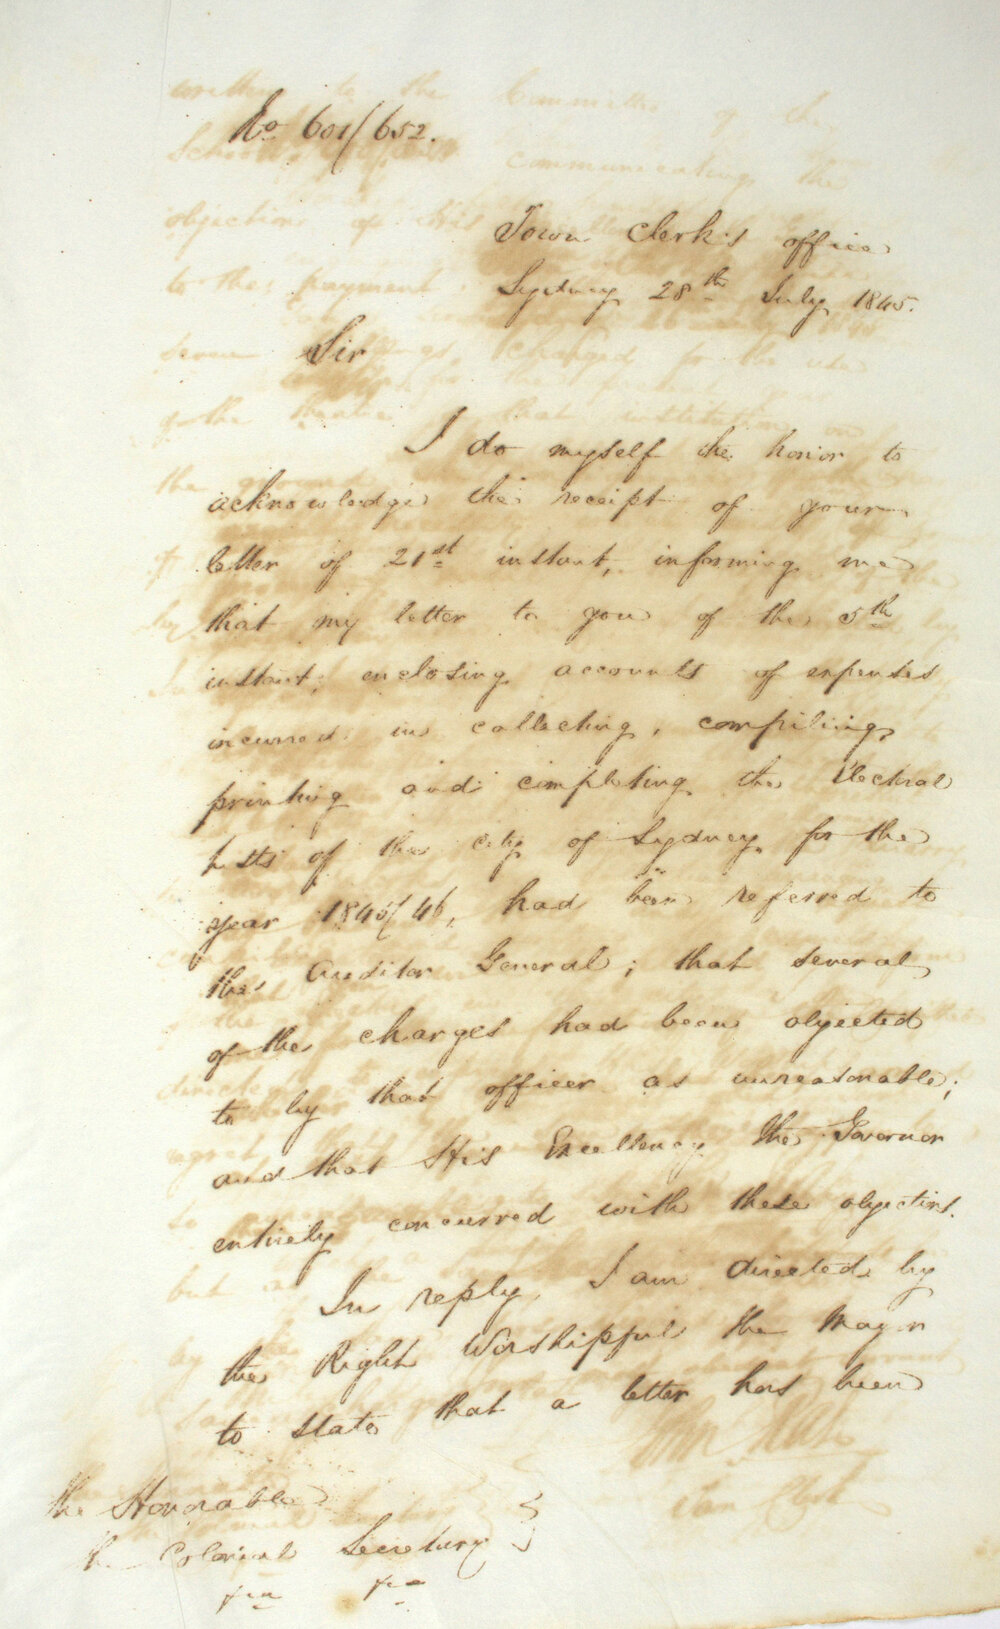 No 601/652.
Town Clerk's office
Sydney 28th July 1845.
Sir
I do myself the honor to
acknowledge the receipt of your
letter of 21st instant, informing me
that my letter to you of the 5th
instant; enclosing accounts of expenses
incurred in collecting, compiling,
printing and completing the Electoral
Lists of the city of Sydney for the
year 1845/46, had been referred to
the Auditor General; that several
of the charges had been objected
to by that officer as unreasonable;
and that His Excellency the Governor
entirely concurred with these objections.
In reply, I am directed by
the Right Worshipful the Mayor
to state that a letter has been
The Honorable
the Colonial Secretary